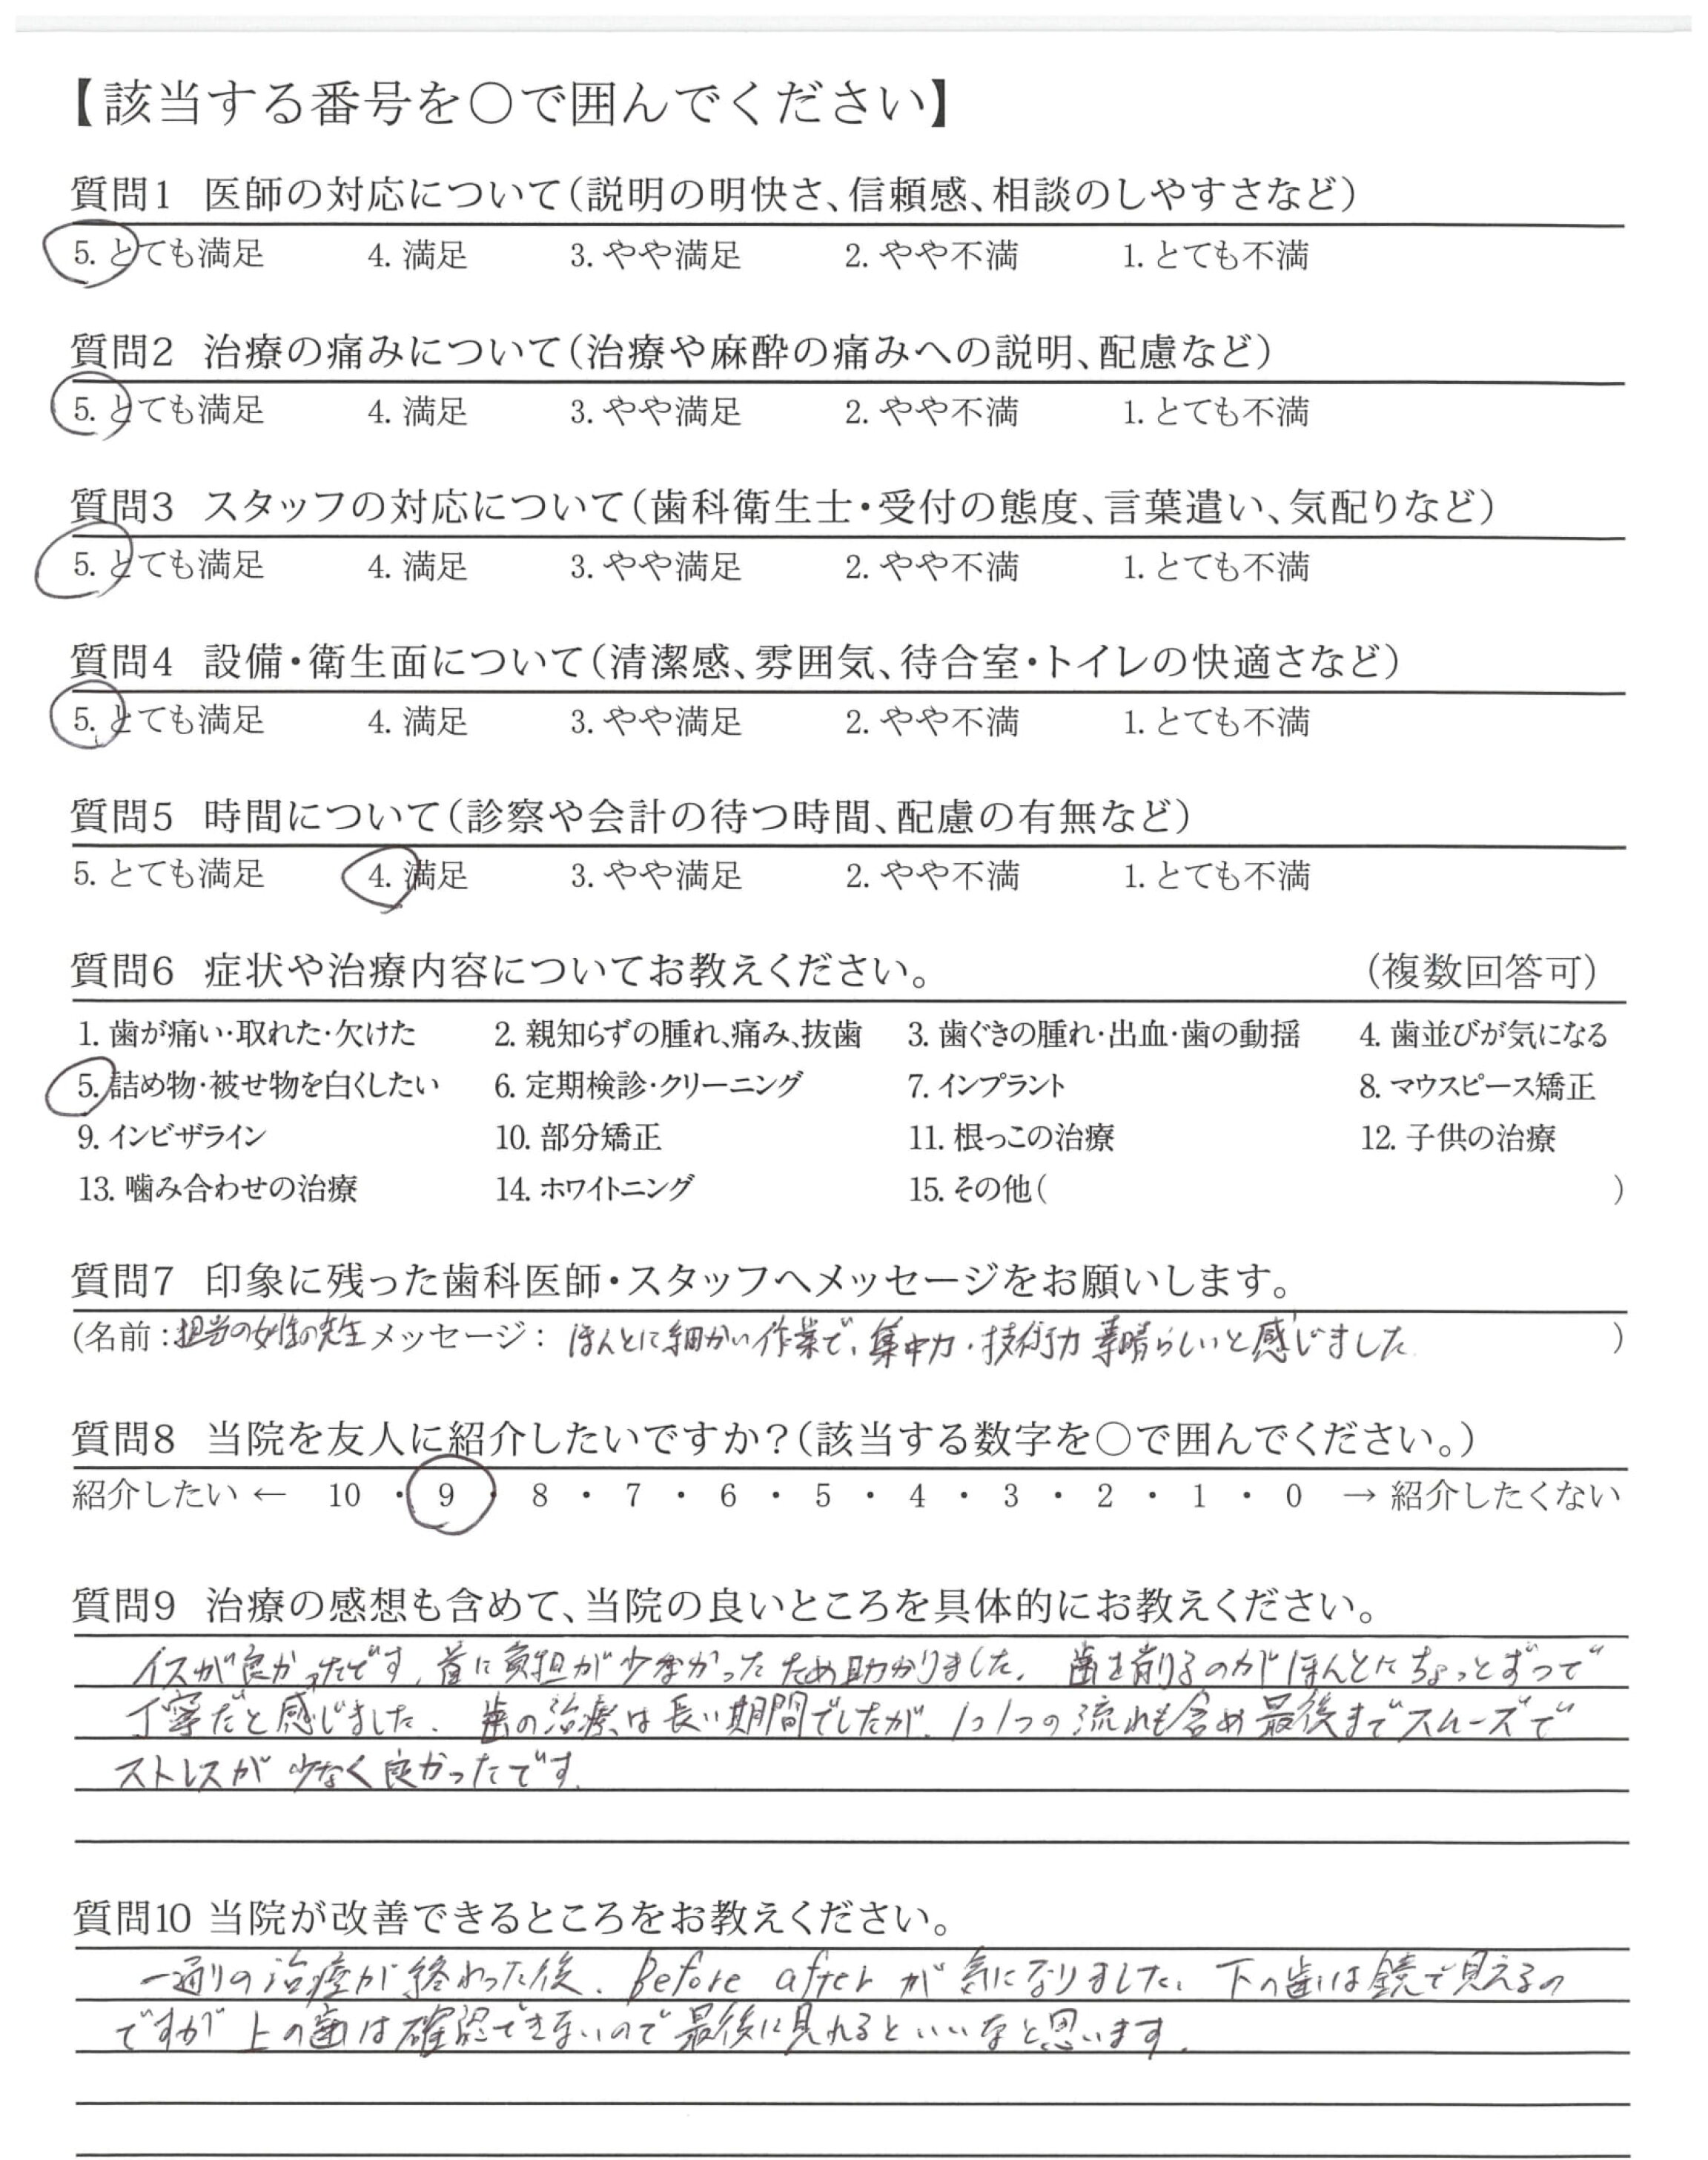 【該当する番号を○で囲んでください】
質問1 医師の対応について(説明の明快さ、信頼感、相談のしやすさなど)
5. とても満足 4. 満足 3. やや満足 2. やや不満 1. とても不満
質問2 治療の痛みについて(治療や麻酔の痛みへの説明、配慮など)
5. とても満足 4. 満足 3. やや満足 2. やや不満 1. とても不満
質問3 スタッフの対応について(歯科衛生士・受付の態度、言葉遣い、気配りなど)
5. とても満足 4. 満足 3. やや満足 2. やや不満 1. とても不満
質問4 設備・衛生面について(清潔感、雰囲気、待合室・トイレの快適さなど)
5. とても満足 4. 満足 3. やや満足 2. やや不満 1. とても不満
質問5 時間について(診察や会計の待つ時間、配慮の有無など)
5. とても満足 4. 満足 3. やや満足 2. やや不満 1. とても不満
質問6 症状や治療内容についてお教えください。 (複数回答可)
1. 歯が痛い・取れた・欠けた 2. 親知らずの腫れ、痛み、抜歯 3. 歯ぐきの腫れ・出血・歯の動揺 4. 歯並びが気になる
5. 詰め物・被せ物を白くしたい 6. 定期検診・クリーニング 7. インプラント 8. マウスピース矯正
9. インビザライン 10. 部分矯正 11. 根っこの治療 12. 子供の治療
13. 噛み合わせの治療 14. ホワイトニング 15. その他( )
質問7 印象に残った歯科医師・スタッフへメッセージをお願いします。
(名前:担当の女性の先生 メッセージ: ほんとに細かい作業で、集中力・技術力 素晴らしいと感じました )
質問8 当院を友人に紹介したいですか?(該当する数字を○で囲んでください。)
紹介したい ← 10 ・ 9 ・ 8 ・ 7 ・ 6 ・ 5 ・ 4 ・ 3 ・ 2 ・ 1 ・ 0 → 紹介したくない
質問9 治療の感想も含めて、当院の良いところを具体的にお教えください。
イスが良かったです、首に負担が少なかったため助かりました。歯を削るのがほんとにちょっとずつで
丁寧だと感じました。歯の治療は長い期間でしたが、1つ1つの流れも含め最後までスムーズで
ストレスが少なく良かったです。
質問10 当院が改善できるところをお教えください。
一通りの治療が終わった後、Before afterが気になりました。下の歯は鏡で見えるの
ですが上の歯は確認できないので最後に見れるといいなと思います。